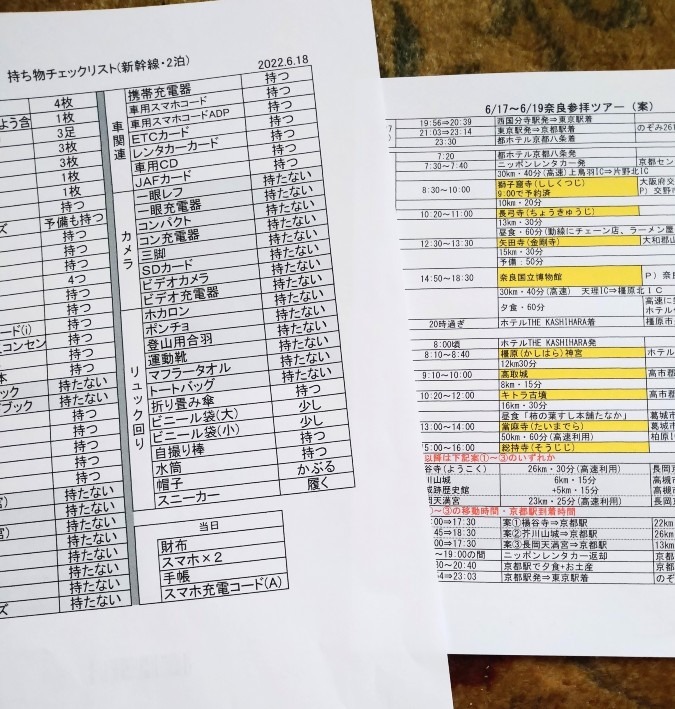 持ち物チェックリスト(新幹線・2泊)
2022.6.18
4枚
よう含 1枚
3足
3枚
3枚
1枚
1枚
ズ 予備も持つ
持つ
持つ
持つ
4つ
持つ
持つ
ード(i) 持つ
スコンセン 持つ
持つ
本 持つ
ック 持たない
ブック 持たない
持つ
持つ
持つ
持つ
持つ
官) 持たない
持たない
持たない
官) 持たない
持たない
持たない
持たない
ズ 持たない
車関連
携帯充電器 持つ
車用スマホコード 持つ
車用スマホコードADP 持つ
ETCカード 持つ
レンタカーカード 持つ
車用CD 持つ
JAFカード 持つ
カメラ
一眼レフ 持たない
一眼充電器 持たない
コンパクト 持たない
コン充電器 持たない
三脚 持たない
SDカード 持たない
ビデオカメラ 持たない
ビデオ充電器 持たない
リュック回り
ホカロン 持たない
ポンチョ 持たない
登山用合羽 持たない
運動靴 持たない
マフラータオル 持たない
トートバッグ 持たない
折り畳み傘 持つ
ビニール袋(大) 少し
ビニール袋(小) 少し
自撮り棒 持つ
水筒 持つ
帽子 かぶる
スニーカー 履く
当日
財布
スマホ×2
手帳
スマホ充電コード(A)
6/17～6/19奈良参拝ツアー（案）
19:56⇒20:39 西国分寺駅発⇒東京駅着
21:03⇒23:14 東京駅発⇒京都駅着 のぞみ26
23:30 都ホテル京都八条着
7:20 都ホテル京都八条発
7:30～7:40 ニッポンレンタカー発 京都セン
30km・40分(高速)上鳥羽IC⇒片野北IC
8:30～10:00 獅子窟寺(ししくつじ) 大阪府交
9:00で予約済 P）交野
10km・20分
10:20～11:00 長弓寺(ちょうきゅうじ)
13km・30分
昼食・60分(動線にチェーン店、ラーメン屋
12:30～13:30 矢田寺(金剛寺) 大和郡山
15km・30分
予備：50分
14:50～18:30 奈良国立博物館 P）奈
30km・40分(高速) 天理IC⇒橿原北IC
夕食・60分 高速に
ホテル
20時過ぎ ホテルTHE KASHIHARA着 橿原市
8:00頃 ホテルTHE KASHIHARA発
8:10～8:40 橿原(かしはら)神宮 ホテル
12km30分
9:10～10:00 高取城 高市郡
8km・15分
10:20～12:00 キトラ古墳 高市郡
16km・30分
昼食「柿の葉すし本舗たなか」 葛城市
13:00～14:00 當麻寺(たいまでら) 葛城市
50km・60分(高速利用) 柏原I
5:00～16:00 総持寺(そうじじ)
以降は下記案①～③のいずれか
谷寺(ようこく) 26km・30分(高速利用) 長岡京
川山城 6km・15分 高槻市
城跡歴史館 +5km・15分 高槻市
岡天満宮 23km・25分(高速利用) 長岡京
～③の移動時間・京都駅到着時間
:00⇒17:30 案①楊谷寺⇒京都駅 22km
:45⇒18:30 案②芥川山城⇒京都駅 26km
:00⇒17:30 案③長岡天満宮⇒京都駅 13km
～19:00の間 ニッポンレンタカー返却 京都
30～20:40 京都駅で夕食+お土産 京都
54⇒23:03 京都駅発⇒東京駅着 のぞ